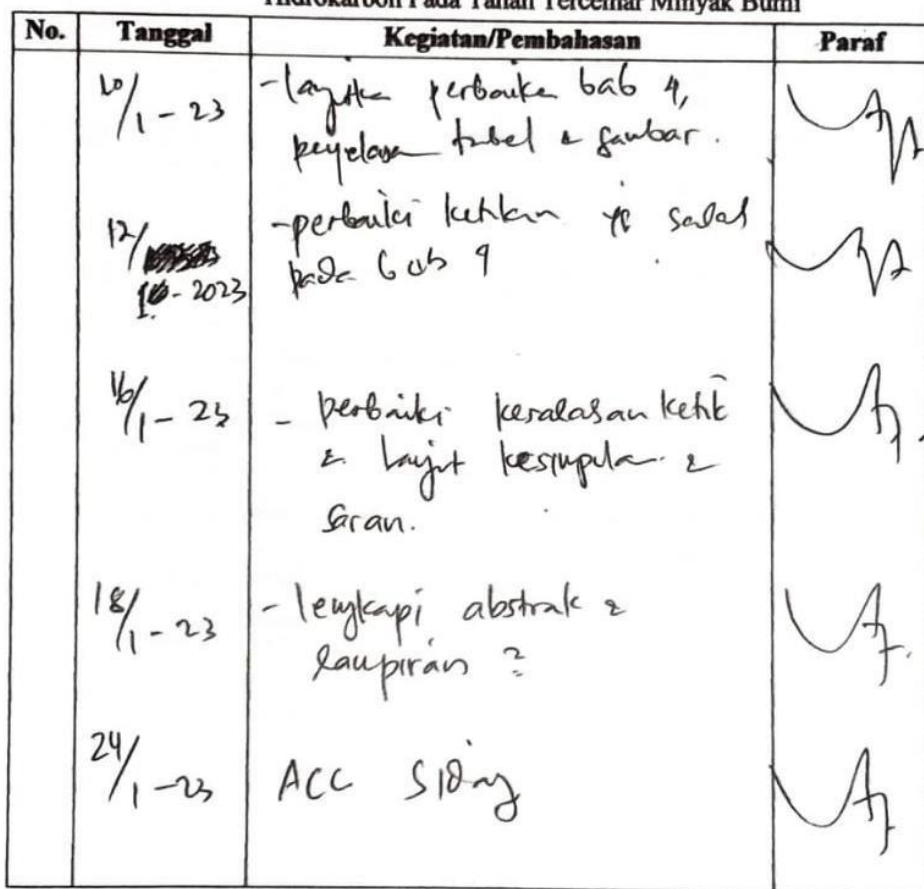 Hidrokarbon Pada Tanah Tercemar Minyak Bumi
No. Tanggal Kegiatan/Pembahasan Paraf
10/1-23 - perbaika bab 4,
tabel & gambar.
12/1-2023 - perbaiki ketikan yg salah
pada bab 4
16/1-23 - perbaiki kesalasan ketik
& lanjut kesimpula &
saran.
18/1-23 - lengkapi abstrak &
lampiran
24/1-23 ACC Sidang